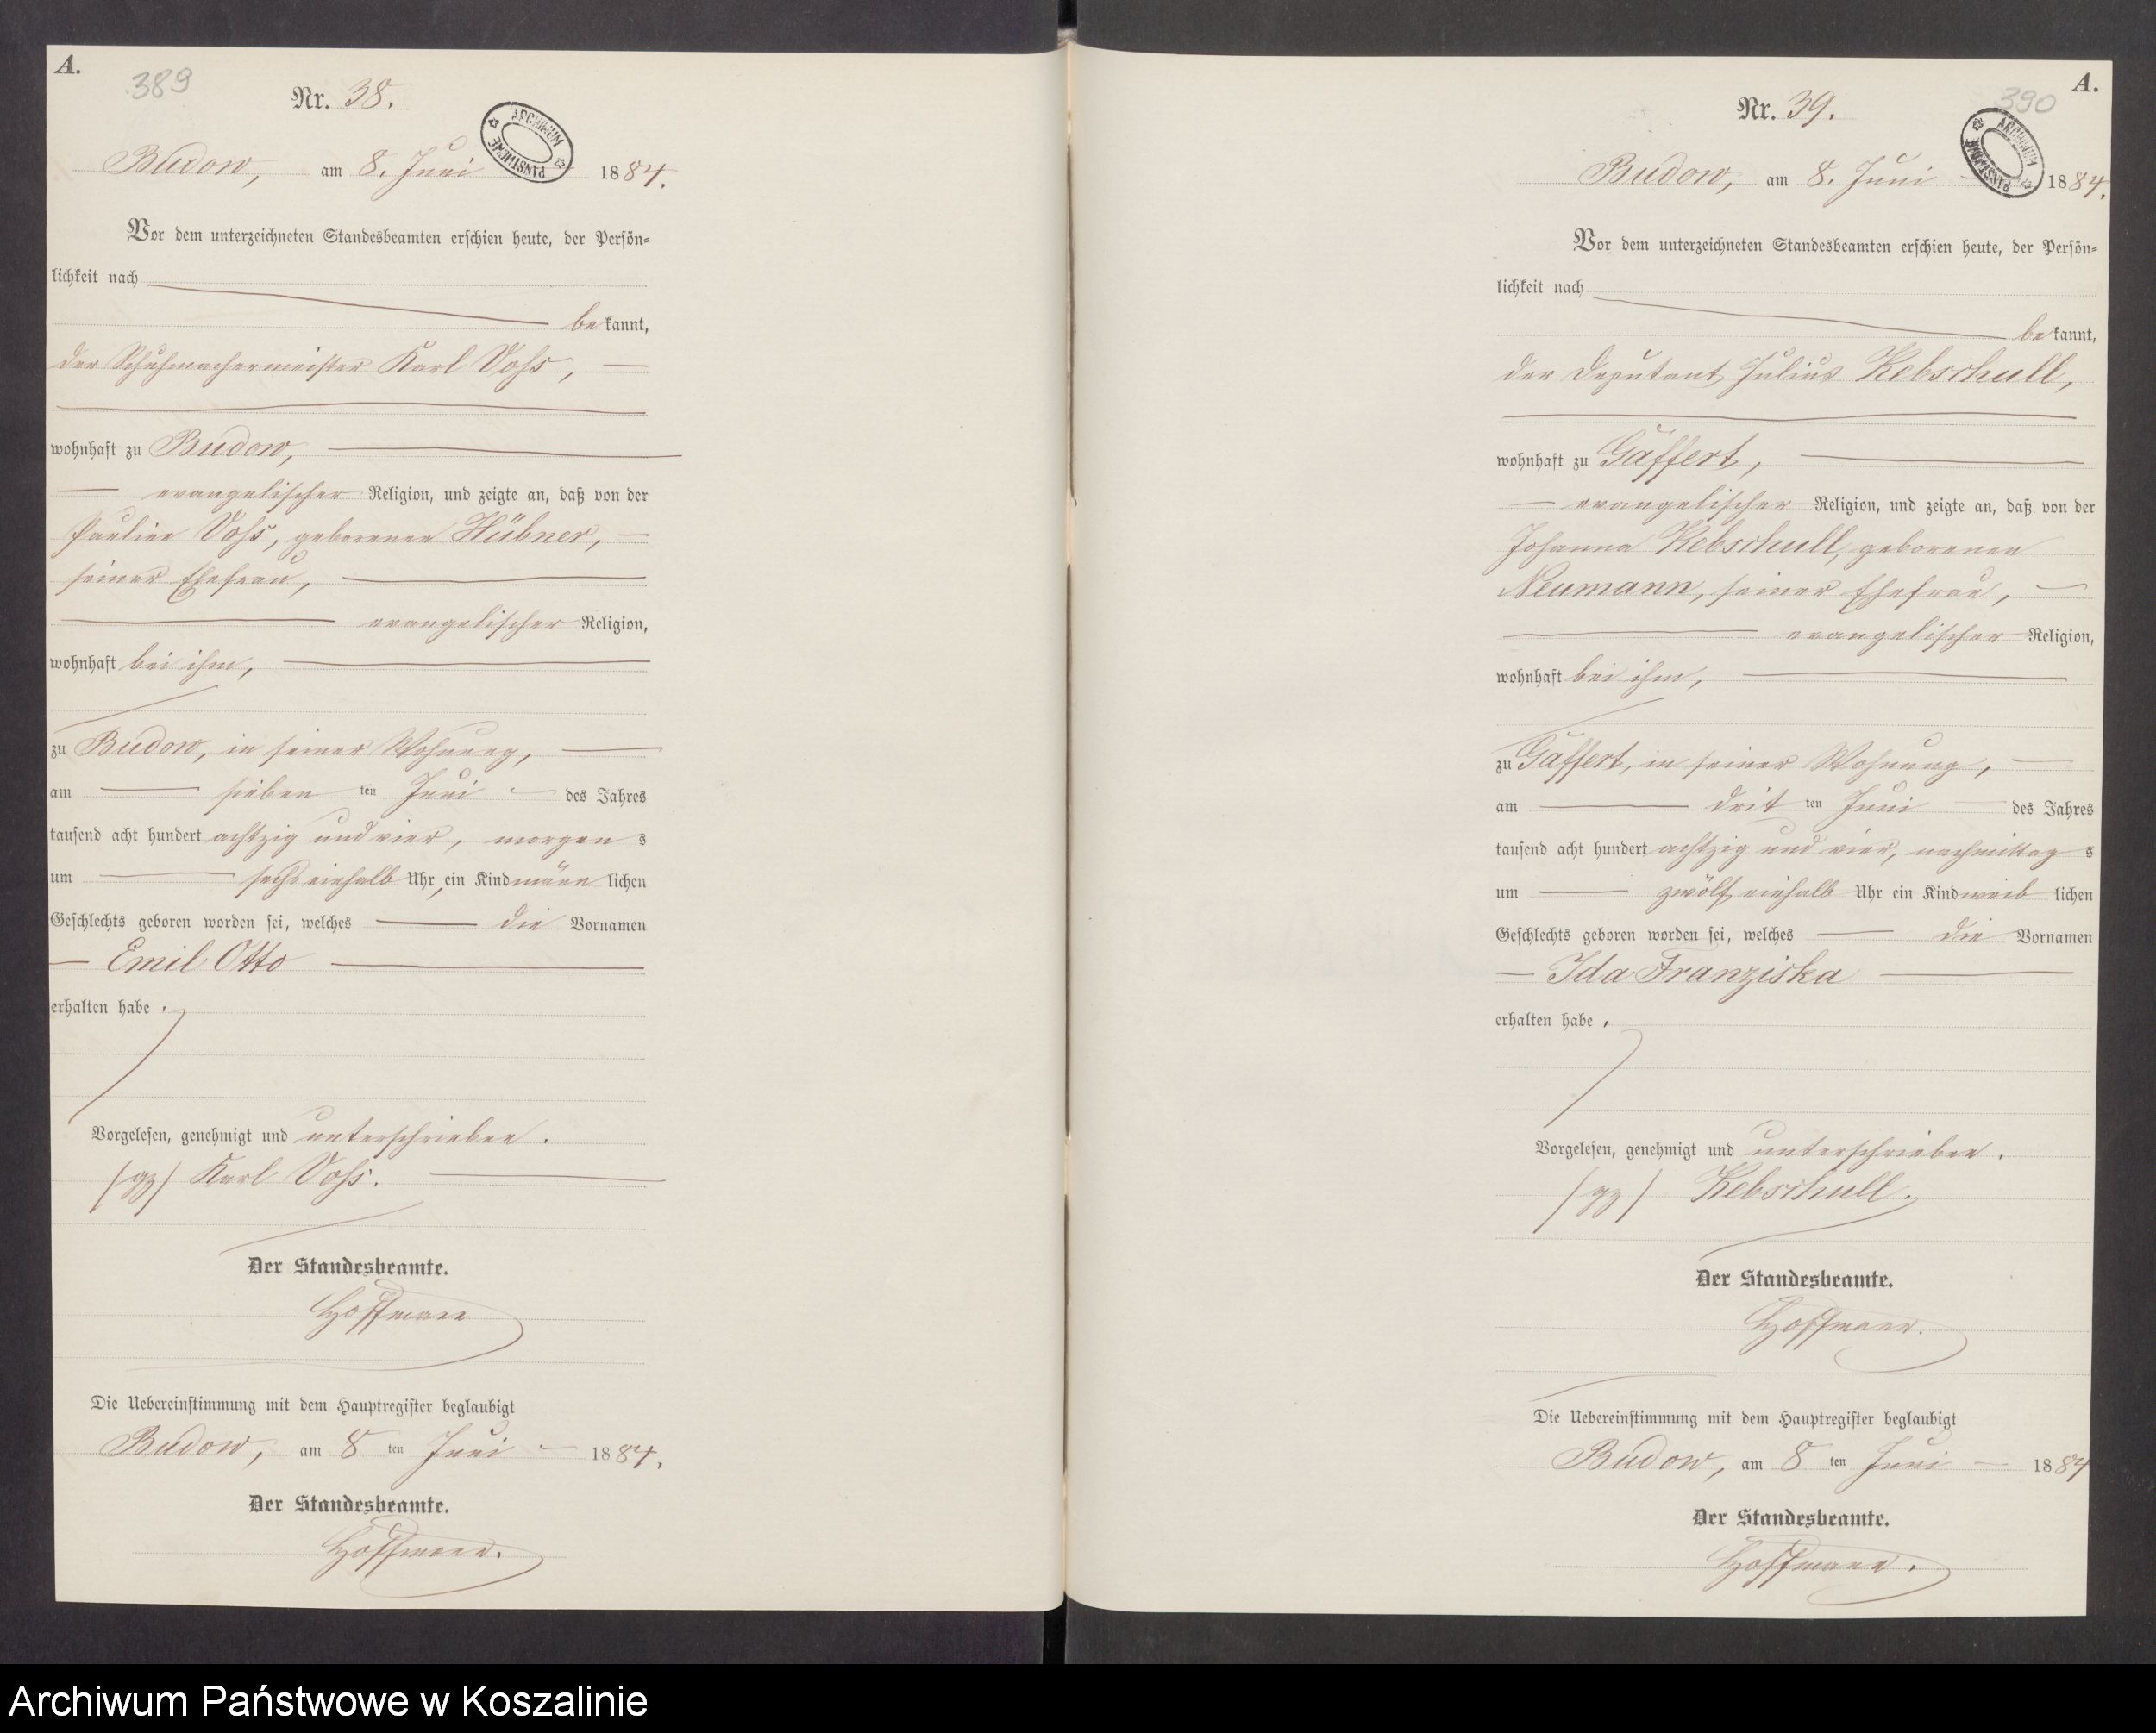 A.
389
Nr. 38.
ARCHIWUM PAŃSTWOWE
Budow, am 8. Juni 1884.
Vor dem unterzeichneten Standesbeamten erschien heute, der Persön=
lichkeit nach
bekannt,
der Schuhmachermeister Karl Voß,
wohnhaft zu Budow,
evangelischer Religion, und zeigte an, daß von der
Pauline Voß, geborenen Hübner,
seiner Ehefrau,
evangelischer Religion,
wohnhaft bei ihm,
zu Budow, in seiner Wohnung,
am sieben ten Juni des Jahres
tausend acht hundert achtzig und vier, morgens
um sechs einhalb Uhr, ein Kind männlichen
Geschlechts geboren worden sei, welches die Vornamen
Emil Otto
erhalten habe.
Vorgelesen, genehmigt und unterschrieben.
(gz) Karl Voß.
Der Standesbeamte.
Hoffmann
Die Uebereinstimmung mit dem Hauptregister beglaubigt
Budow, am 8 ten Juni 1884.
Der Standesbeamte.
Hoffmann.
A.
390
Nr. 39.
ARCHIWUM PAŃSTWOWE
Budow, am 8. Juni 1884.
Vor dem unterzeichneten Standesbeamten erschien heute, der Persön=
lichkeit nach
bekannt,
der Deputant Julius Kebschull,
wohnhaft zu Gaffert,
evangelischer Religion, und zeigte an, daß von der
Johanna Kebschull, geborenen
Neumann, seiner Ehefrau,
evangelischer Religion,
wohnhaft bei ihm,
zu Gaffert, in seiner Wohnung,
am drit ten Juni des Jahres
tausend acht hundert achtzig und vier, nachmittags
um zwölf einhalb Uhr ein Kind weiblichen
Geschlechts geboren worden sei, welches die Vornamen
Ida Franziska
erhalten habe.
Vorgelesen, genehmigt und unterschrieben.
(gz) Kebschull.
Der Standesbeamte.
Hoffmann.
Die Uebereinstimmung mit dem Hauptregister beglaubigt
Budow, am 8 ten Juni 1884
Der Standesbeamte.
Hoffmann.
Archiwum Państwowe w Koszalinie